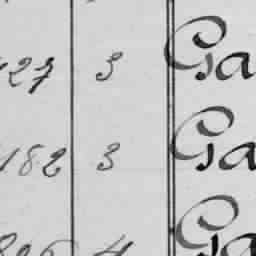 127 3 Ga
182 3 Ga
Ga